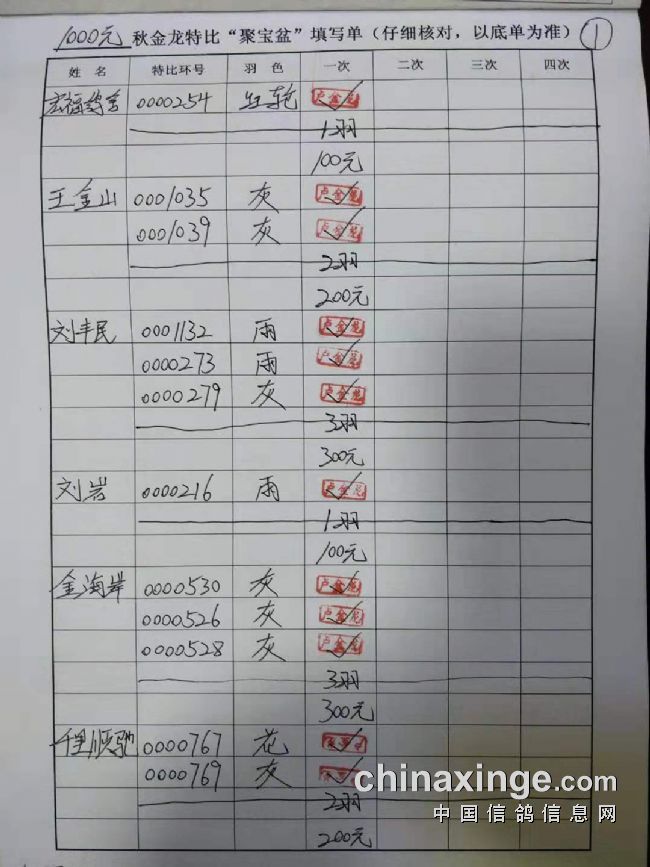 1000元 秋金龙特比“聚宝盆”填写单（仔细核对，以底单为准） 1
姓 名 特比环号 羽 色 一次 二次 三次 四次
0000254 红轮 卢金龙
1羽
100元
王金山 0001035 灰 卢金龙
0001039 灰 卢金龙
2羽
200元
刘丰民 0001132 雨 卢金龙
0000273 雨 卢金龙
0000279 灰 卢金龙
3羽
300元
刘岩 0000216 雨 卢金龙
1羽
100元
金海岸 0000530 灰 卢金龙
0000526 灰 卢金龙
0000528 灰 卢金龙
3羽
300元
千里顺驰 0000767 花
0000769 灰
2羽
200元
chinaxinge.com
中国信鸽信息网